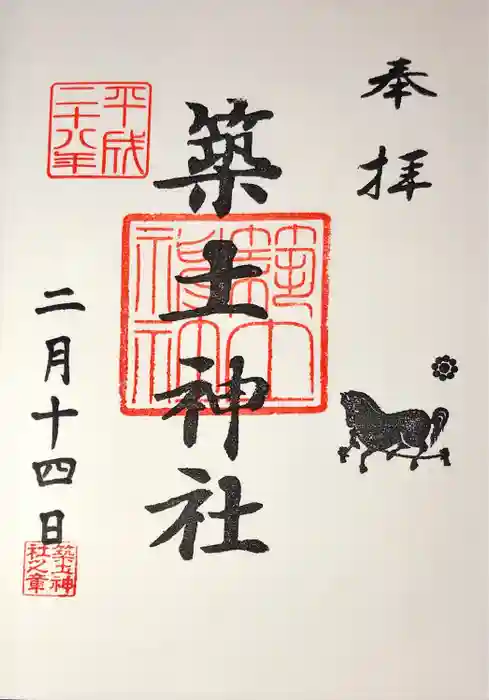 奉拝
築土神社
平成
二十八年
二月十四日
築土神
社之章